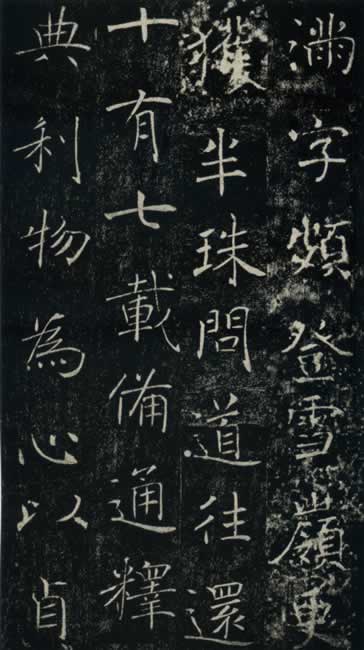 滿字頻登雪嶺更
獲半珠問道往還
十有七載備通釋
典利物為心以貞